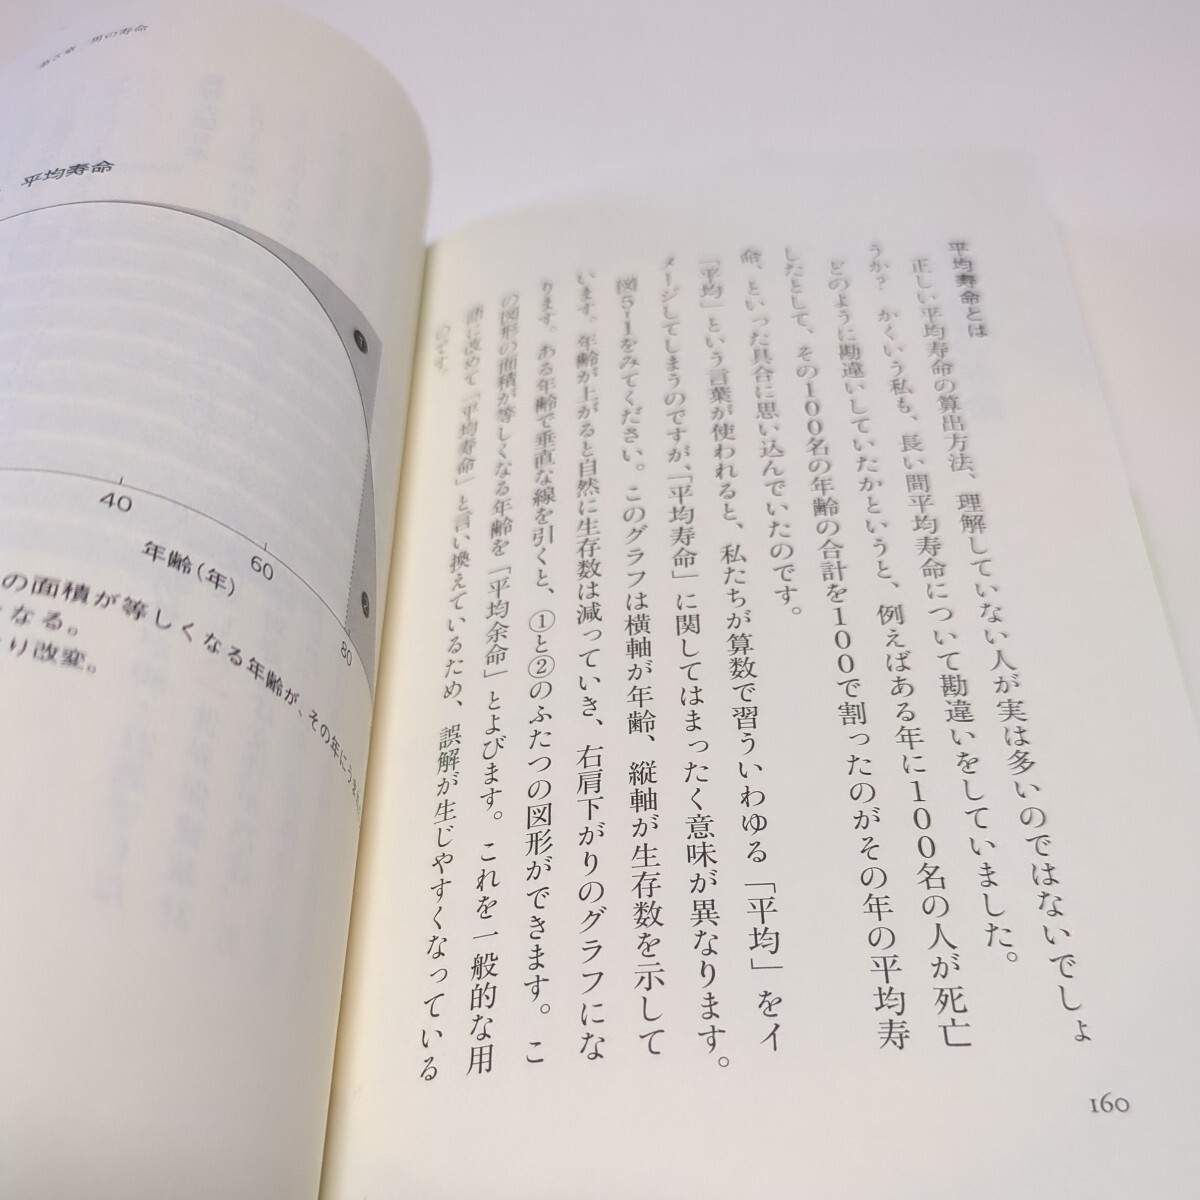 平均寿命とは
正しい平均寿命の算出方法、理解していない人が実は多いのではないでしょ
うか? かくいう私も、長い間平均寿命について勘違いをしていました。
どのように勘違いしていたかというと、例えばある年に100名の人が死亡
したとして、その100名の年齢の合計を100で割ったのがその年の平均寿
命、といった具合に思い込んでいたのです。
「平均」という言葉が使われると、私たちが算数で習ういわゆる「平均」をイ
メージしてしまうのですが、「平均寿命」に関してはまったく意味が異なります。
図5-1をみてください。このグラフは横軸が年齢、縦軸が生存数を示して
います。年齢が上がると自然に生存数は減っていき、右肩下がりのグラフにな
ります。ある年齢で垂直な線を引くと、①と②のふたつの図形ができます。こ
の図形の面積が等しくなる年齢を「平均余命」とよびます。これを一般的な用
語に改めて「平均寿命」と言い換えているため、誤解が生じやすくなっている
のです。
160
第5章 男の寿命
平均寿命
❶
❷
40
60
80
年齢(年)
の面積が等しくなる年齢が、その年にうまれ
なる。
り改変。